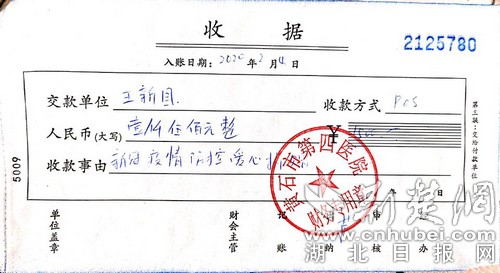 收 据
2125780
入账日期：2020年2月4日
交款单位 王新国 收款方式 POS
人民币(大写) 壹仟伍佰元整 ￥
收款事由 新冠疫情防控爱心
年 月 日
黄石市第四医院
财务专用章
单位盖章 财会主管 记账 出纳 审核 经办
第三联：交给付款单位
5009
荆楚网
www.cnhubei.com
湖北日报网